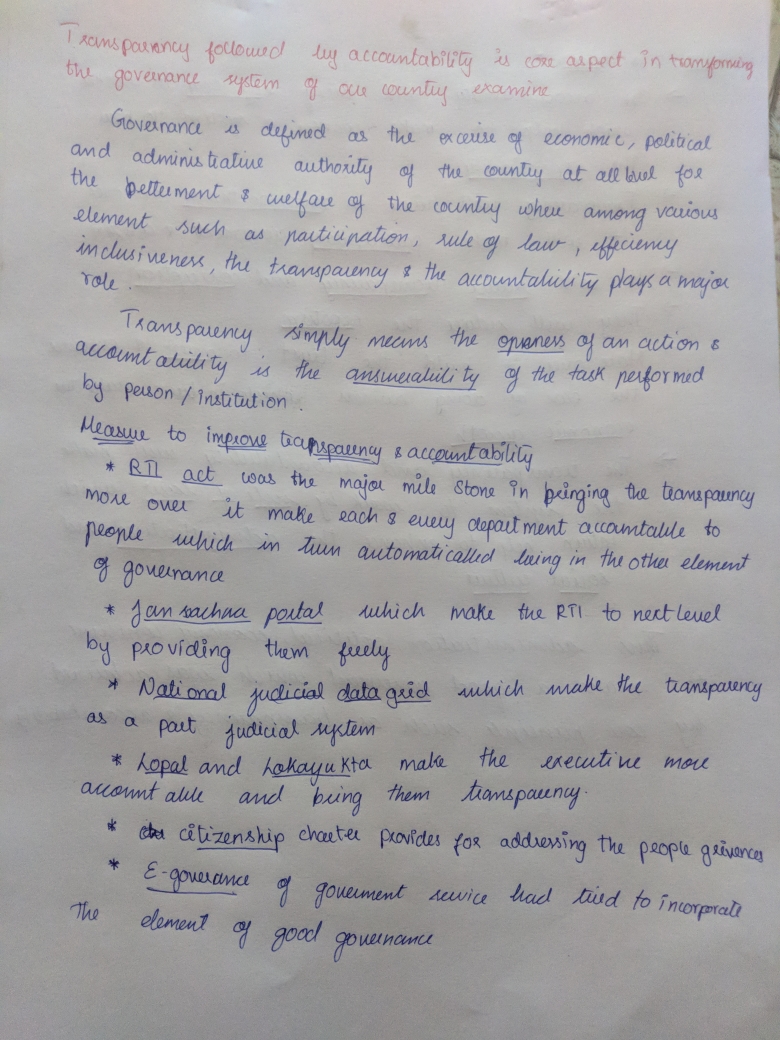 Transparency followed by accountability is core aspect in transforming
the governance system of our country examine
Governance is defined as the excerise of economic, political
and administrative authority of the country at all level for
the betterment & welfare of the country where among various
element such as participation, rule of law, efficiency
inclusiveness, the transparency & the accountability plays a major
role.
Transparency simply means the openess of an action &
accountability is the answerability of the task performed
by person / institution.
Measure to improve transparency & accountability
* RTI act was the major mile stone in bringing the transparency
more over it make each & every department accountable to
people which in turn automaticalled being in the other element
of governance
* Jan sachna portal which make the RTI to next level
by providing them freely
* National judicial data grid which make the transparency
as a part judicial system
* Lopal and Lokayukta make the executive more
accountable and bring them transparency.
* citizenship charter provides for addressing the people grievences
* E-goverance of goverment service had tried to incorporate
The element of good governance